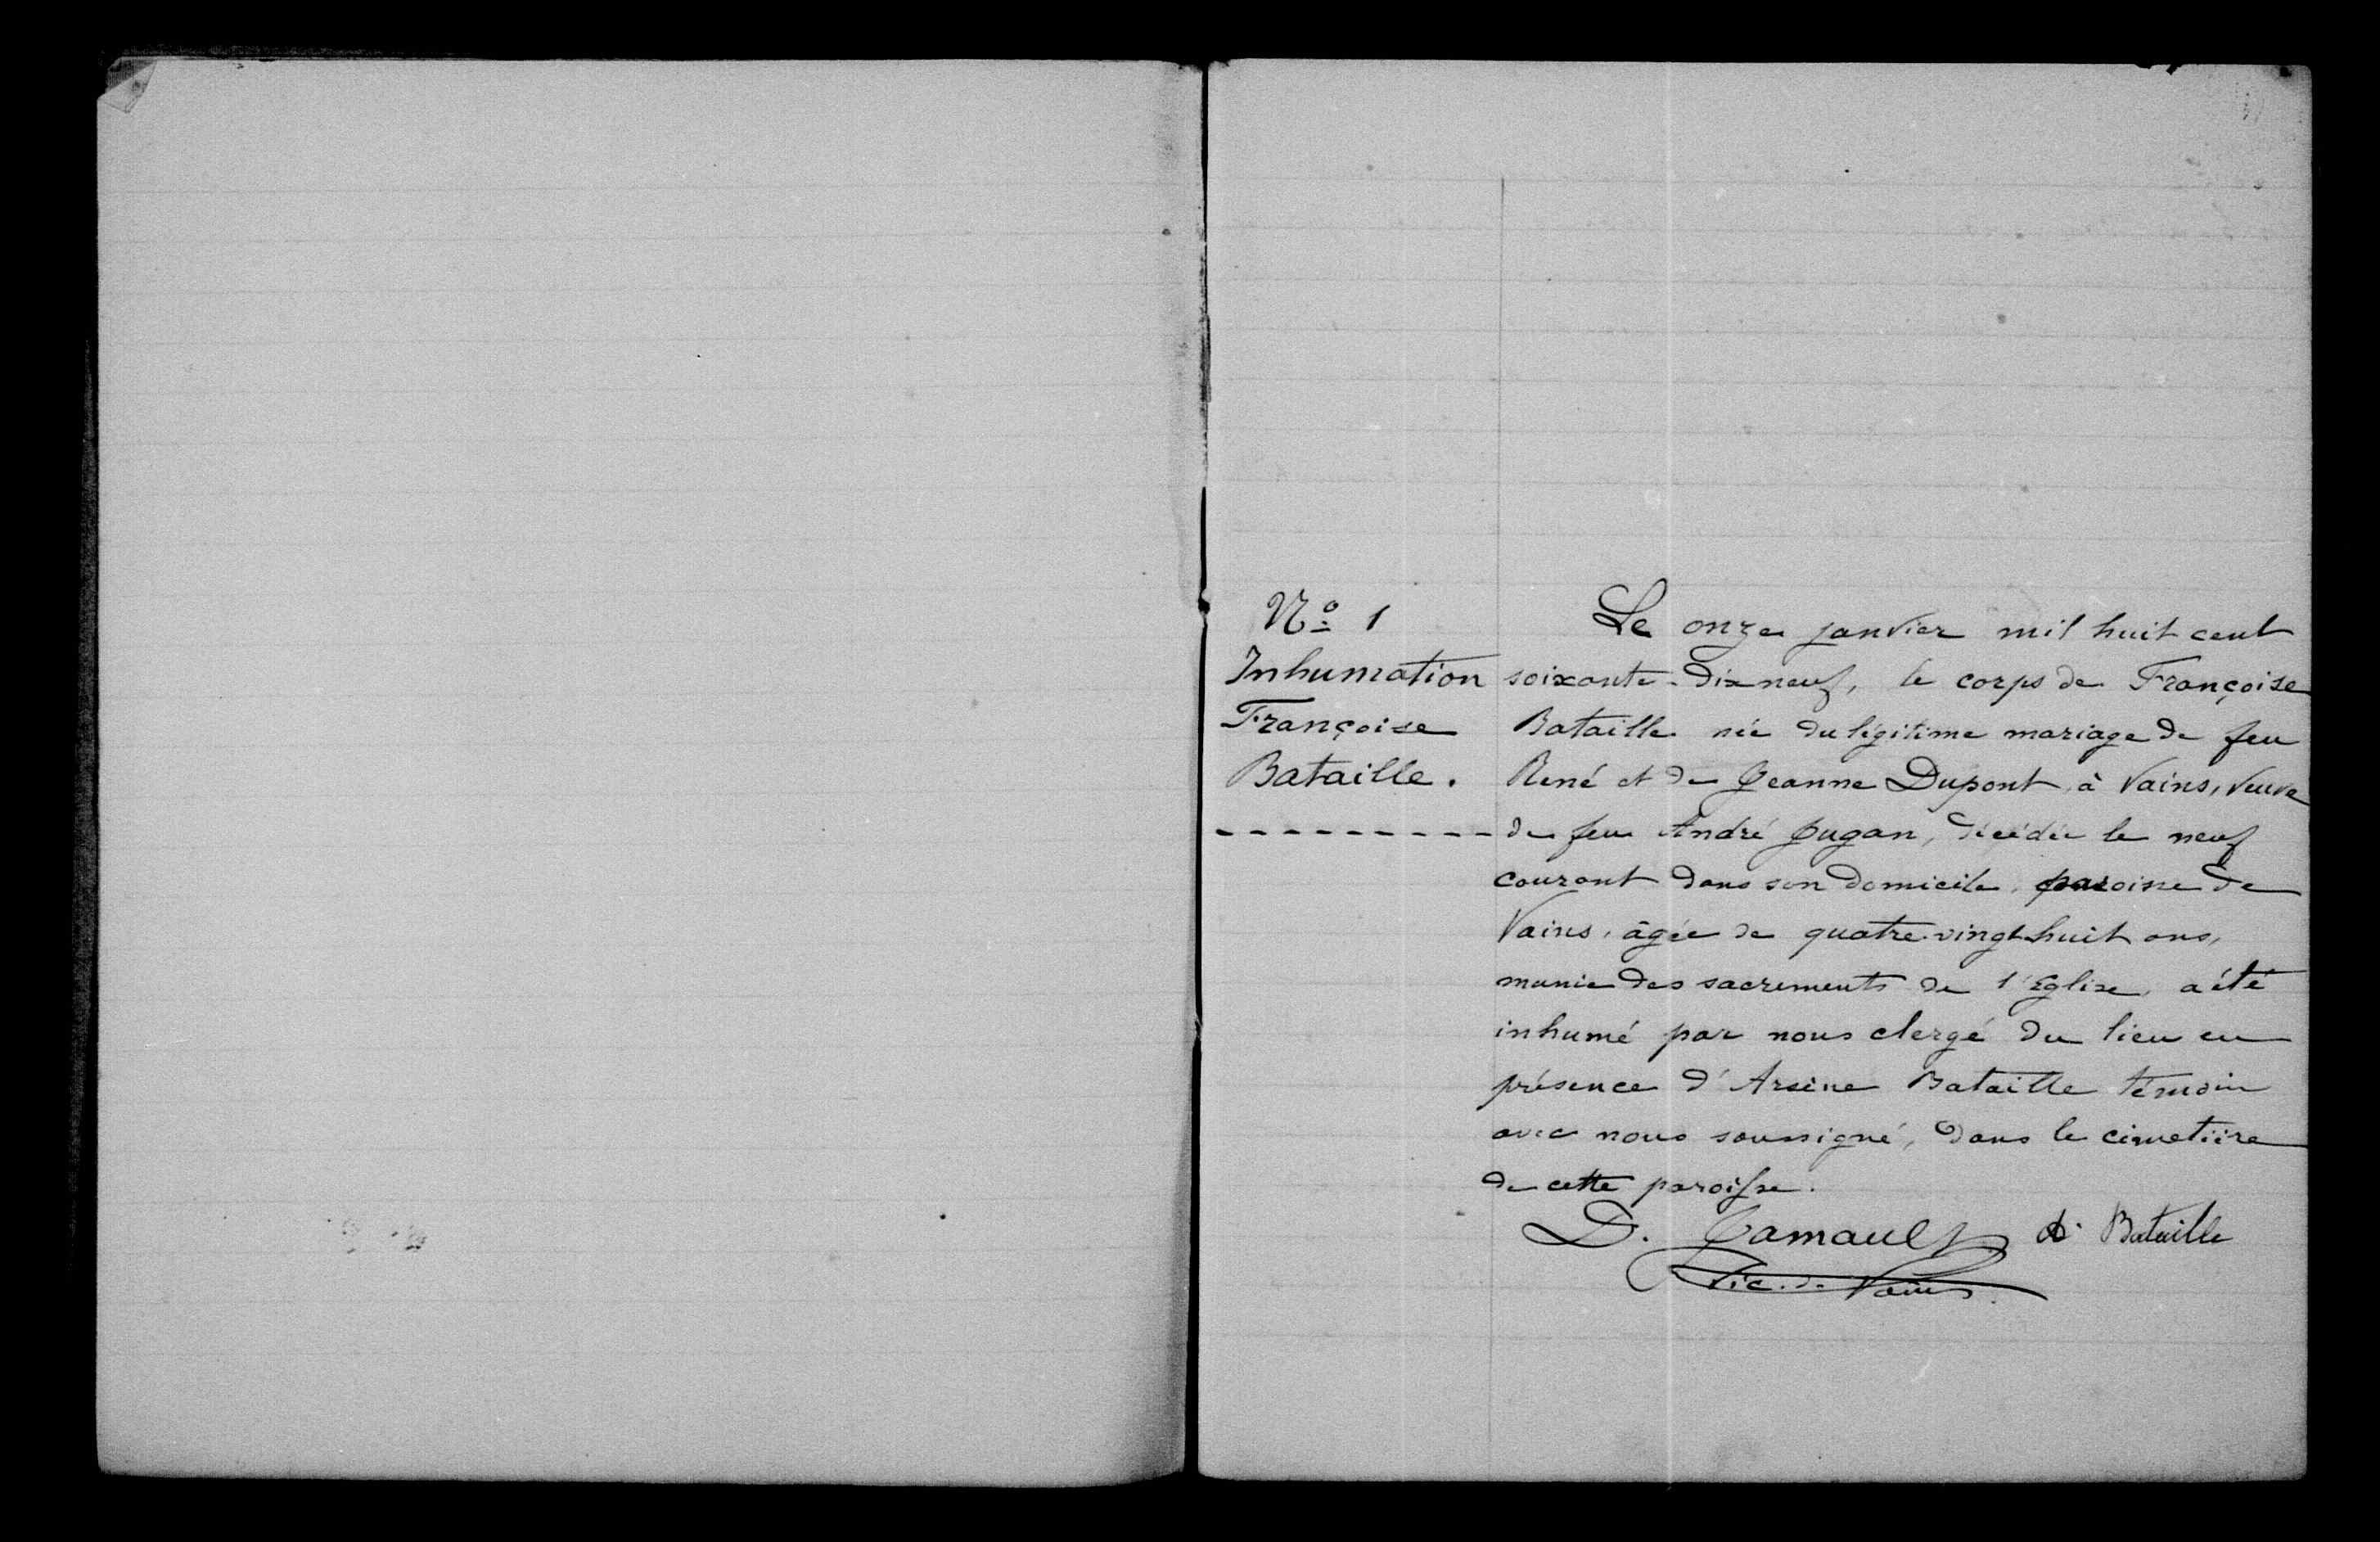 Nº 1
Inhumation
Françoise
Bataille.
Le onze janvier mil huit cent
soixante-dix neuf, le corps de Françoise
Bataille née du légitime mariage de feu
René et de Jeanne Dupont, à Vains, veuve
de feu André Jugan, décédée le neuf
courant dans son domicile, paroisse de
Vains, âgée de quatre-vingt huit ans,
munie des sacrements de l'Eglise, a été
inhumé par nous clergé du lieu en
présence d'Arsène Bataille témoin
avec nous soussigné, dans le cimetière
de cette paroisse.
D. Jamault A. Bataille
Vic. de Vains.